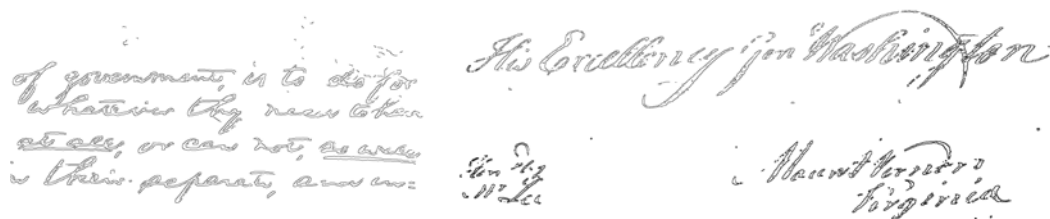 of government, is to do for
whatever they need to have
at all, or can not, so well
their separate, and in=
His Excellency Gen Washington
Lee
Mount Vernon
Virginia